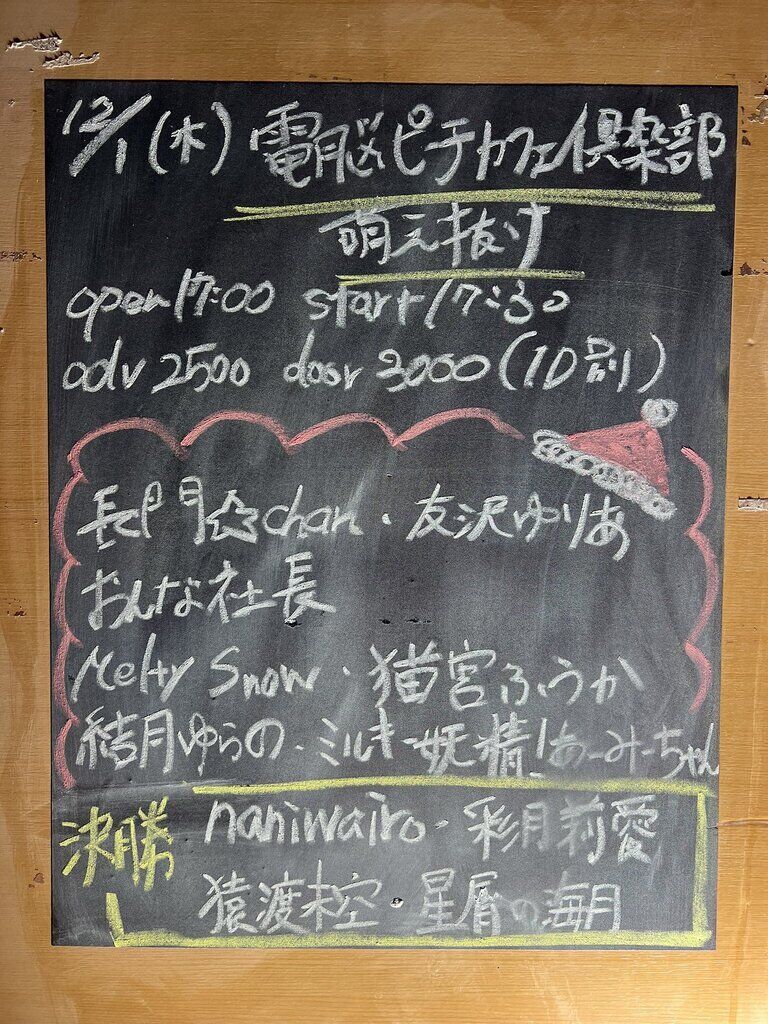 12/1(木) 電脳ピーチカフェ倶楽部
萌え抜け
open17:00 start17:30
adv 2500 door 3000(1D別)
長門☆chan・友沢ゆりあ
おんな社長
Melty Snow・猫宮ふうか
結月ゆらの・ミルキー妖精!あーみーちゃん
決勝 naniwairo・彩月莉愛
猿渡未空・星屑の海月